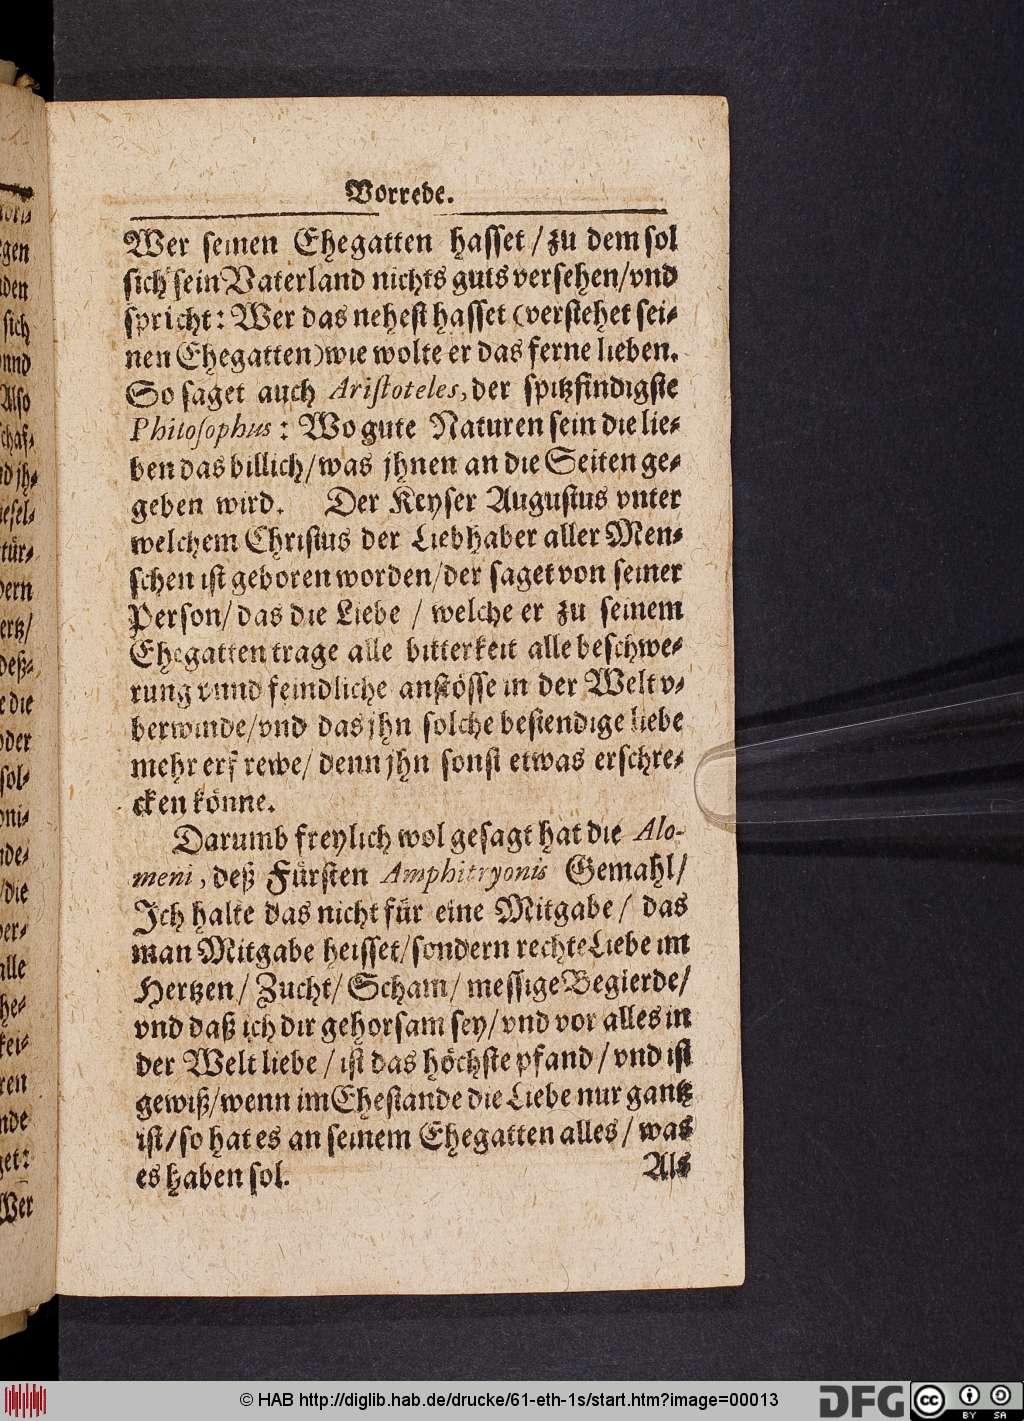 Vorrede.
Wer seinen Ehegatten hasset / zu dem sol
sich sein Vaterland nichts guts versehen/vnd
spricht: Wer das nehest hasset (verstehet sei-
nen Ehegatten) wie wolte er das ferne lieben.
So saget auch Aristoteles, der spitzfindigste
Philosophus: Wo gute Naturen sein die lie-
ben das billich/was jhnen an die Seiten ge-
geben wird. Der Keyser Augustus vnter
welchem Christus der Liebhaber aller Men-
schen ist geboren worden/der saget von seiner
Person/ das die Liebe / welche er zu seinem
Ehegatten trage alle bitterkeit alle beschwe-
rung vnnd feindliche anstösse in der Welt v-
berwinde/vnd das jhn solche bestendige liebe
mehr erfrewe/ denn jhn sonst etwas erschre-
cken könne.
Darumb freylich wol gesagt hat die Alo-
meni, deß Fürsten Amphitryonis Gemahl/
Ich halte das nicht für eine Mitgabe/ das
man Mitgabe heisset/sondern rechte Liebe im
Hertzen/ Zucht/ Scham/ messige Begierde/
vnd daß ich dir gehorsam sey/vnd vor alles in
der Welt liebe / ist das höchste pfand / vnd ist
gewiß/wenn im Ehestande die Liebe nur gantz
ist/so hat es an seinem Ehegatten alles / was
es haben sol.
Als
gen
nden
sich
vnnd
Also
schaf-
nd jh-
iesel-
tür-
dern
ertz/
deß-
e die
oder
sol-
oni-
nde-
/die
ver-
alle
he-
kei-
ren
nde
get:
Wer
© HAB http://diglib.hab.de/drucke/61-eth-1s/start.htm?image=00013
DFG
cc BY SA